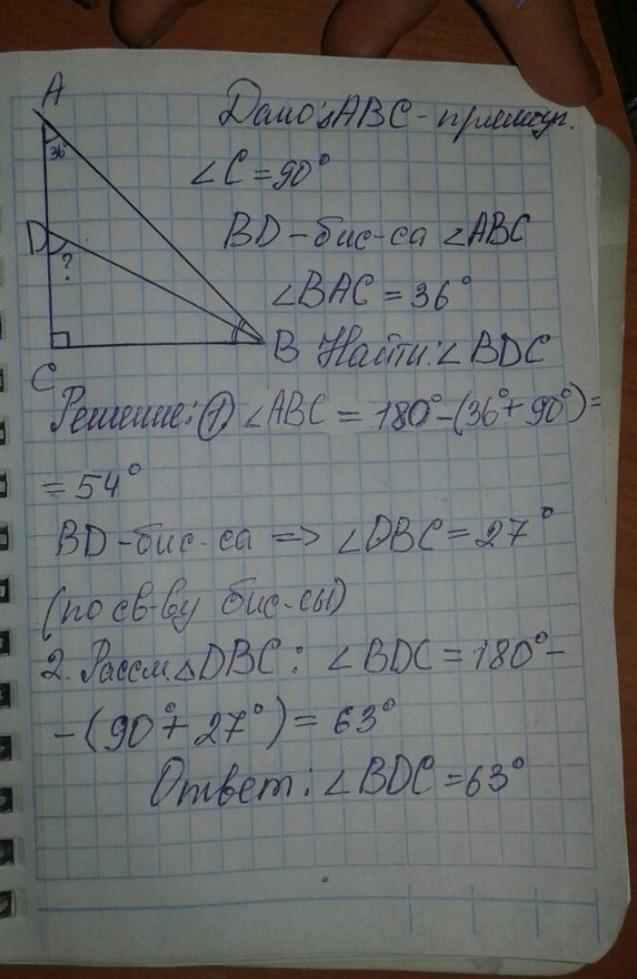 A
36°
D
?
C
B
Дано: △ABC - прямоуг.
∠C = 90°
BD - бис-са ∠ABC
∠BAC = 36°
Найти: ∠BDC
Решение: ① ∠ABC = 180° - (36° + 90°) =
= 54°
BD - бис-са => ∠DBC = 27°
(по св-ву бис-сы)
2. Рассм. △DBC: ∠BDC = 180° -
- (90° + 27°) = 63°
Ответ: ∠BDC = 63°